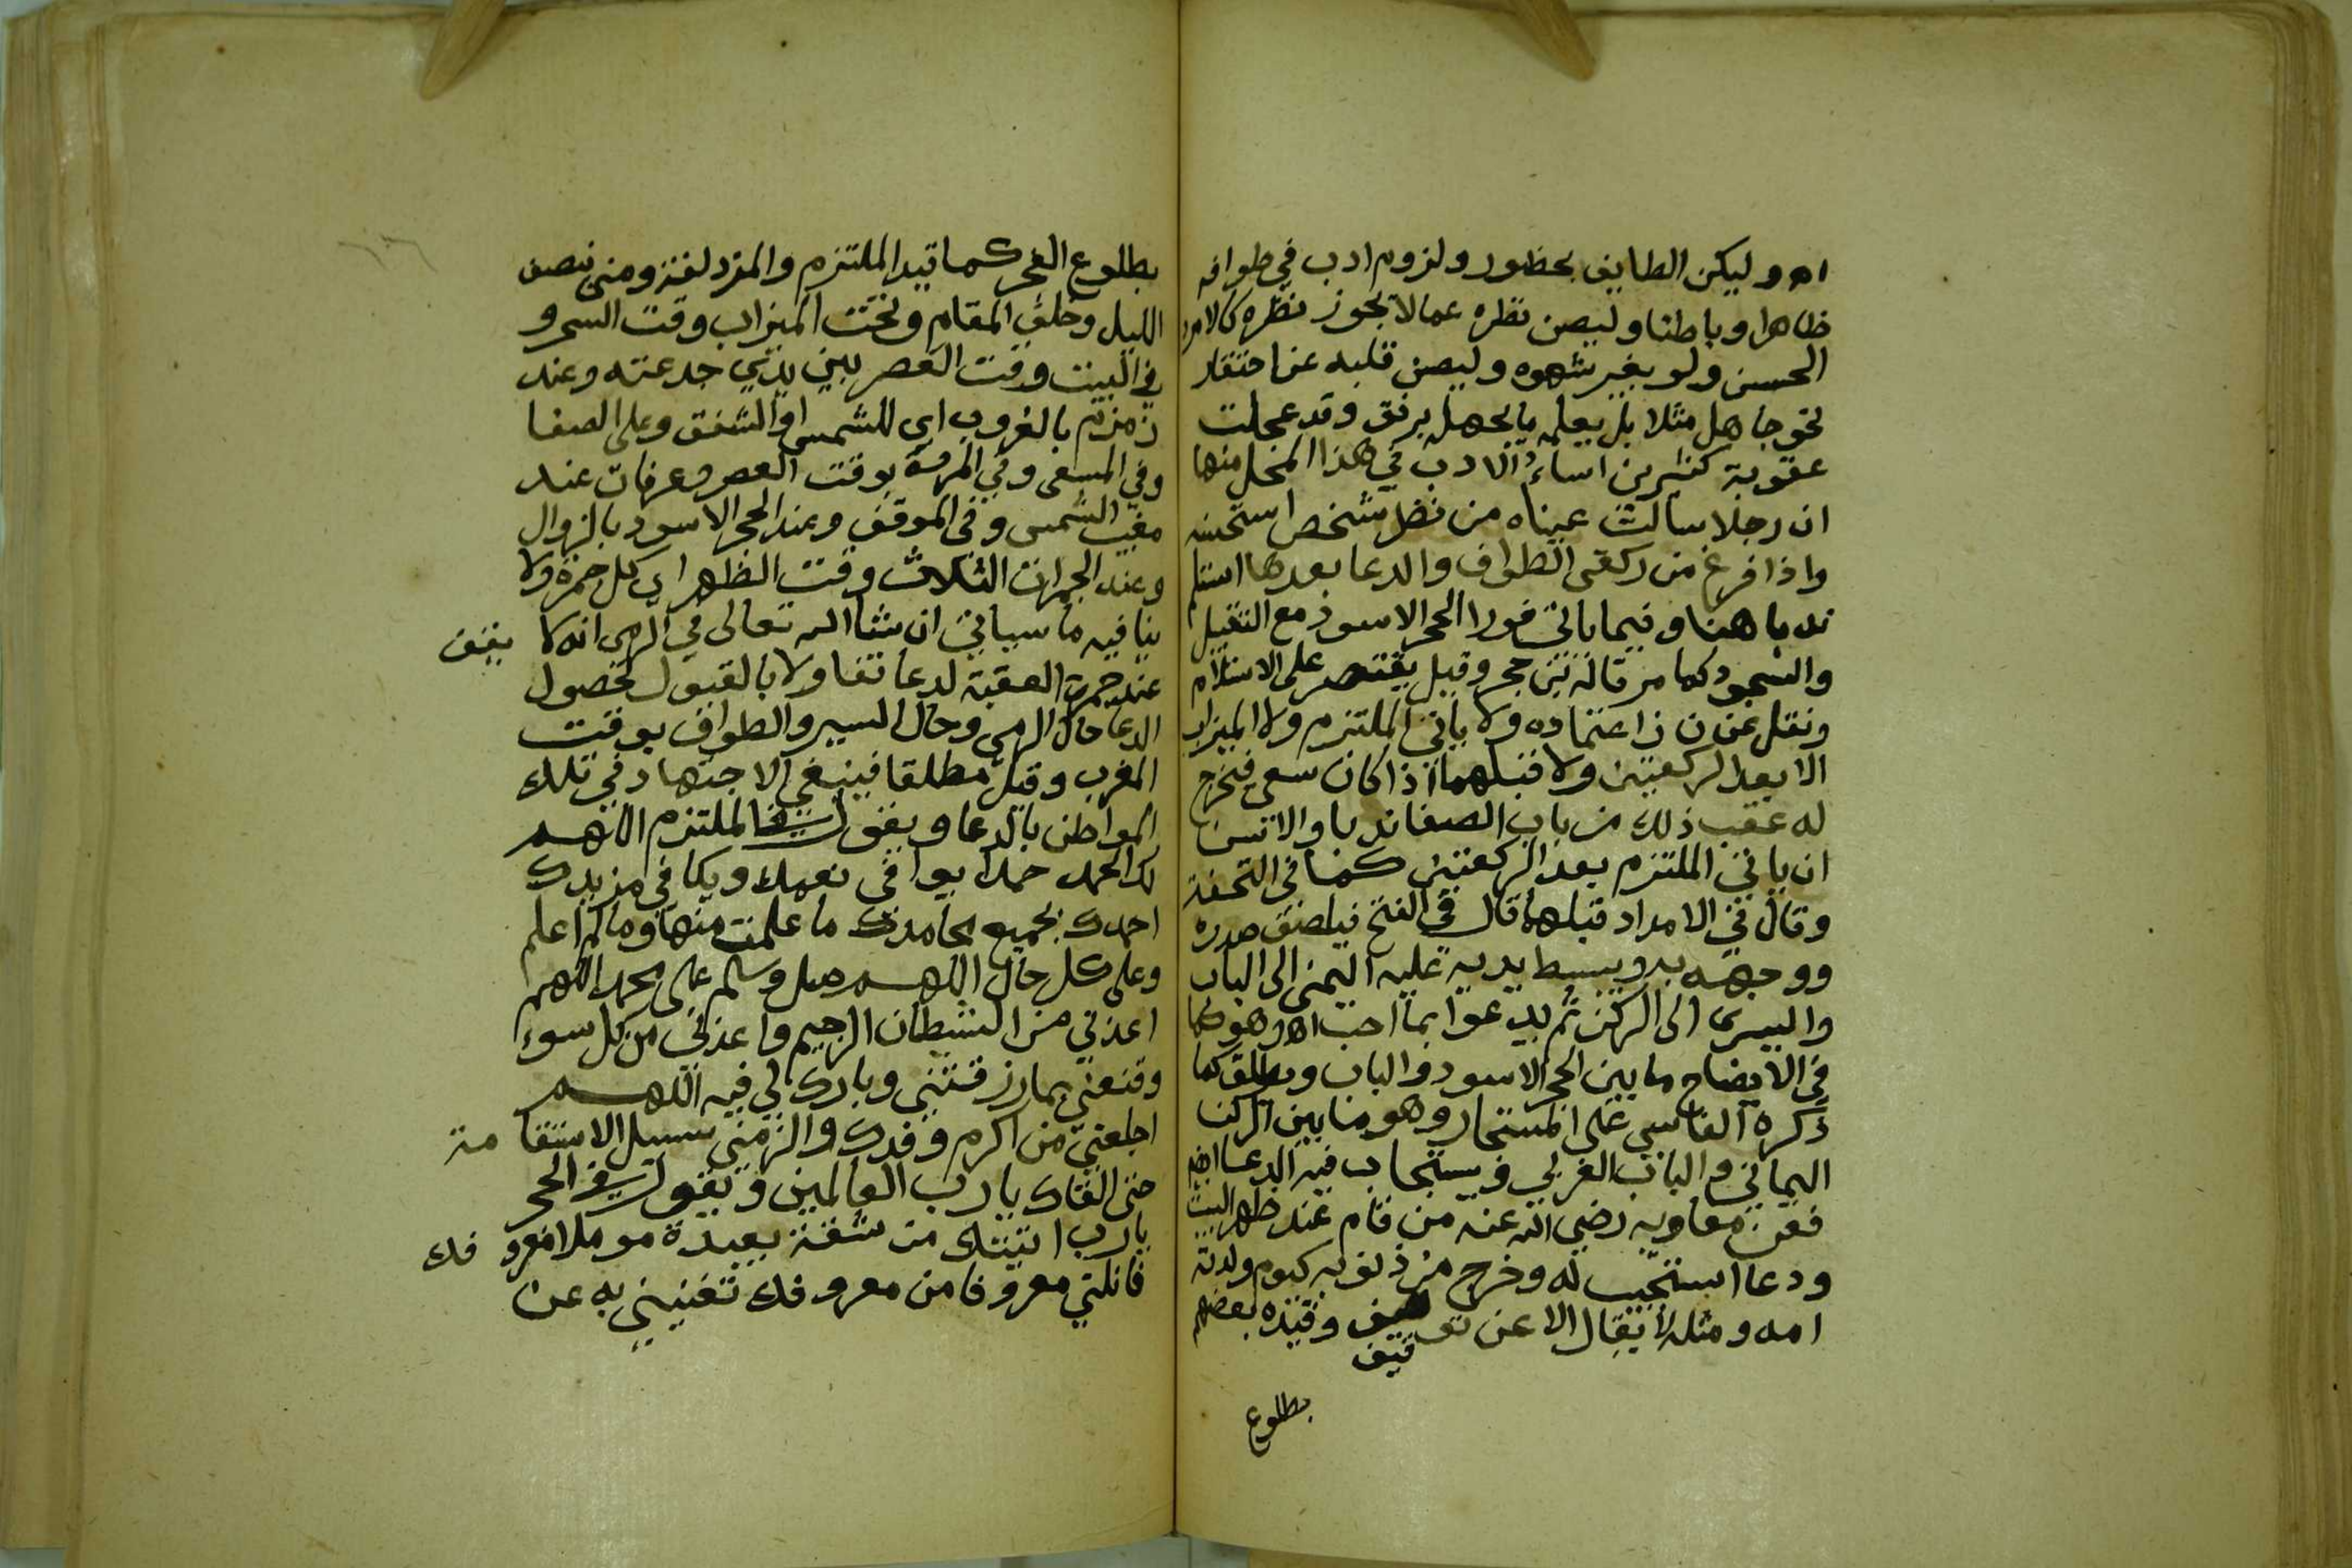 اه وليكن الطايف بحظور ولزوم ادب في طوافه
ظاهرا وباطنا وليصن نظره عما لا يجوز نظره كالامرد
الحسن ولو بغير شهوه وليصن قلبه عن احتقار
نحو جاهل مثلا بل يعلمه ما يجهله برفق وقد عجلت
عقوبة كثيرين اساءُ الادب في هذا المحل منها
ان رجلا سالت عيناه من نظر شخص استحسنه
واذا فرغ من ركعتي الطواف والدعا بعدها استلم
ندبا هنا وفيما ياتي فورا الحجر الاسود مع التقبيل
والسجود كما مر قاله بن حجر وقيل يقتصر على الاستلام
ونقل عن ن ز اعتماده ولا ياتي الملتزم ولا الميزاب
الا بعد الركعتين ولا قبلهما اذا كان سعي فيخرج
له عقب ذلك من باب الصفا ندبا والا تسن
ان ياتي الملتزم بعد الركعتين كما في التحفة
وقال في الامداد قبلهما قال في الفتح فيلصق صدره
ووجهه به ويبسط يديه عليه اليمنى الى الباب
واليسرى الى الركن ثم يدعوا بما احب اه وهو كما
في الايضاح ما بين الحجر الاسود والباب ويطلق كما
ذكره الفاسي على المستجار وهو ما بين الركن
اليماني والباب الغربي ويستجاب فيه الدعا ايضا
فعن معاويه رضي الله عنه من قام عند ظهر البيت
ودعا استجيب له وخرج من ذنوبه كيوم ولدته
امه ومثله لا يقال الا عن توقيف وقيده بعضهم
قيف
بطلوع
بطلوع الفجر كما قيد الملتزم والمزدلفة ومنى بنصف
الليل وخلف المقام وتحت الميزاب وقت السحر و
في البيت وقت العصر بين يدي جدعته وعند
زمزم بالغروب اي للشمس او الشفق وعلى الصفا
وفي المسعى وفي المروة بوقت العصر وعرفات عند
مغيب الشمس وفي الموقف وعند الحجر الاسود بالزوال
وعند الجمرات الثلاث وقت الظهر اي كل جمرة ولا
ينافيه ما سياتي ان شا الله تعالى في الرمى انه لا يقف
عند جمرة العقبة لدعا تفاولا بالقبول لحصول
الدعا حال الرمى وحال السير والطواف بوقت
المغرب وقيل مطلقا فينبغي الاجتهاد في تلك
المواطن بالدعا ويقول في الملتزم اللهم
لك الحمد حمدا يوافي نعمك ويكافي مزيدك
احمدك بجميع محامدك ما علمت منها وما لم اعلم
وعلى كل حال اللهم صل وسلم على محمد اللهم
اعذني من الشيطان الرجيم واعذني من كل سوء
وقنعني بما رزقتني وبارك لي فيه اللهم
اجلعني من اكرم وفدك والزمني سبيل الاستقامة
حتى القاك يا رب العالمين ويقول في الحجر
يارب اتيتك من شقة بعيدة موملا معروفك
فانلني معروفا من معروفك تغنيني به عن